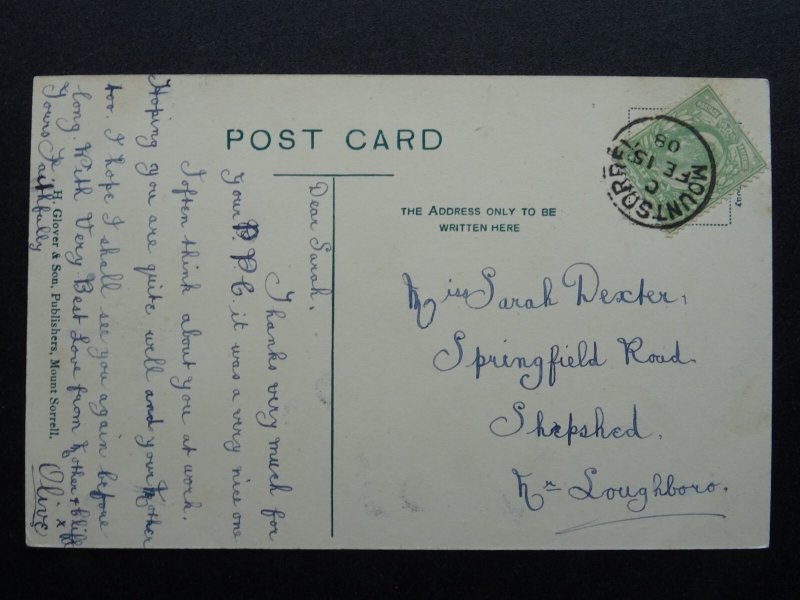 POST CARD
Dear Sarah,
Thanks very much for
your P. P. C. it was a very nice one
I often think about you at work.
Hoping you are quite well and your Mother
too. I hope I shall see you again before
long. With Very Best Love from Mother & Clift
Yours Faithfully
Olive x
H. Glover & Son, Publishers, Mount Sorrell.
THE ADDRESS ONLY TO BE
WRITTEN HERE
MOUNTSORREL
C
FE 15
08
Miss Sarah Dexter,
Springfield Road.
Shepshed.
Nr Loughboro.